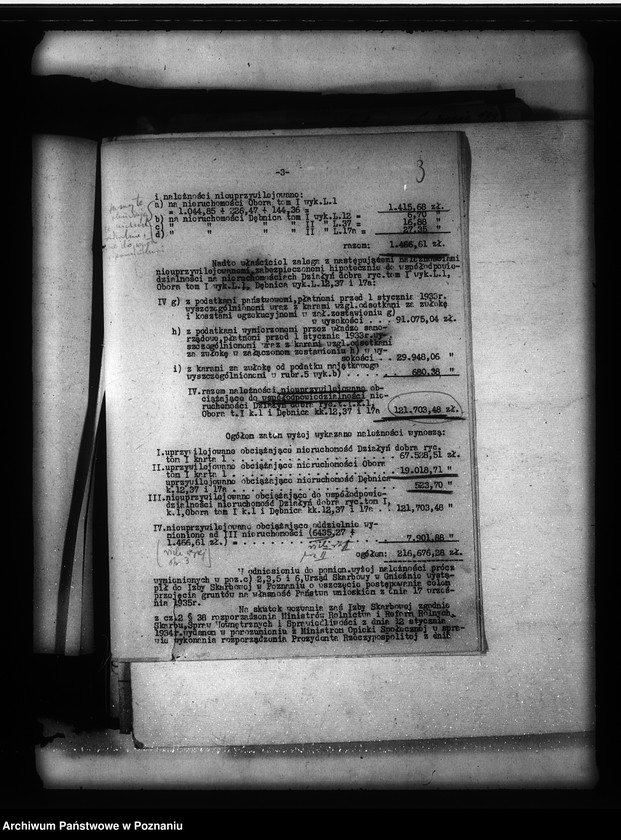 -3-
3
i należności nieuprzywilejowane:
a) na nieruchomości Obora tom I wyk.L.1
= 1.044,85 + 226,47 + 144,36 = 1.415,68 zł.
b) na nieruchomości Dębnica tom I wyk.L.12 = 6,70 "
c) " " " " II " L.37 = 16,88 "
d) " " " " II " L.17a = 27,35 "
razem: 1.466,61 zł.
Nadto właściciel zalega z następującemi należnościami
nieuprzywilejowanemi, zabezpieczonemi hipotecznie do współodpowie-
dzialności na nieruchomościach Działyń dobra ryc.tom I wyk.L.1,
Obora tom I wyk.L.1, Dębnica wyk.L.12,37 i 17a:
IV g) z podatkami państwowemi, płatnemi przed 1 stycznia 1933r.
wyszczególnionemi wraz z karami wzgl.odsetkami za zwłokę
i kosztami egzekucyjnemi w zał.zestawieniu g)
w wysokości . . . 91.075,04 zł.
h) z podatkami wymierzonemi przez władze samo-
rządowe, płatnemi przed 1 stycznia 1933r. wy-
szczególnionemi wraz z karami wzgl.odsetkami
za zwłokę w załączonem zestawieniu h) w wy-
sokości . . 29.948,06 "
i) z karami za zwłokę od podatku majątkowego
wyszczególnionemi w rubr.5 wyk.b) . . . . . 680,38 "
IV.razem należności nieuprzywilejowane ob-
ciążające do współodpowiedzialności nie-
ruchomości Działyń dobra ryc.t.I.k.1,
Obora t.I k.1 i Dębnica kk.12,37 i 17a 121.703,48 zł.
Ogółem zatem wyżej wykazane należności wynoszą:
I.uprzywilejowane obciążające nieruchomość Działyń dobra ryc.
tom I karta 1 . . . . . . . . . . . . . . 67.528,51 zł.
II.uprzywilejowane obciążające nieruchomości Obora
tom I karta 1 . . . . . . . . . . . . . . 19.018,71 "
uprzywilejowane obciążające nieruchomość Dębnica
k.12,37 i 17a . . . . . . . . . . . . . . 523,70 "
III.nieuprzywilejowane obciążające do współodpowie-
dzialności nieruchomość Działyń dobra ryc.tom I,
k.1,Obora tom I k.1 i Dębnica kk.12,37 i 17a . . 121.703,48 "
IV.nieuprzywilejowane obciążające oddzielnie wy-
mienione ad III nieruchomości (6435,27 +
1.466,61 zł.) = . . . . . . . . . . . . 7.901,88 "
ogółem: 216.676,28 zł.
W odniesieniu do pomien.wyżej należności prócz
wymienionych w poz.c) 2,3,5 i 6, Urząd Skarbowy w Gnieźnie wystą-
pił do Izby Skarbowej w Poznaniu o wszczęcie postępowania celem
przejęcia gruntów na własność Państwa wnioskiem z dnia 17 wrześ-
nia 1935r.
Na skutek wezwania zaś Izby Skarbowej zgodnie
z cz.2 § 38 rozporządzenia Ministrów Rolnictwa i Reform Rolnych,
Skarbu, Spraw Wewnętrznych i Sprawiedliwości z dnia 12 stycznia
1934r.wydanem w porozumieniu z Ministrem Opieki Społecznej w spra-
wie wykonania rozporządzenia Prezydenta Rzeczypospolitej z dnia
Archiwum Państwowe w Poznaniu